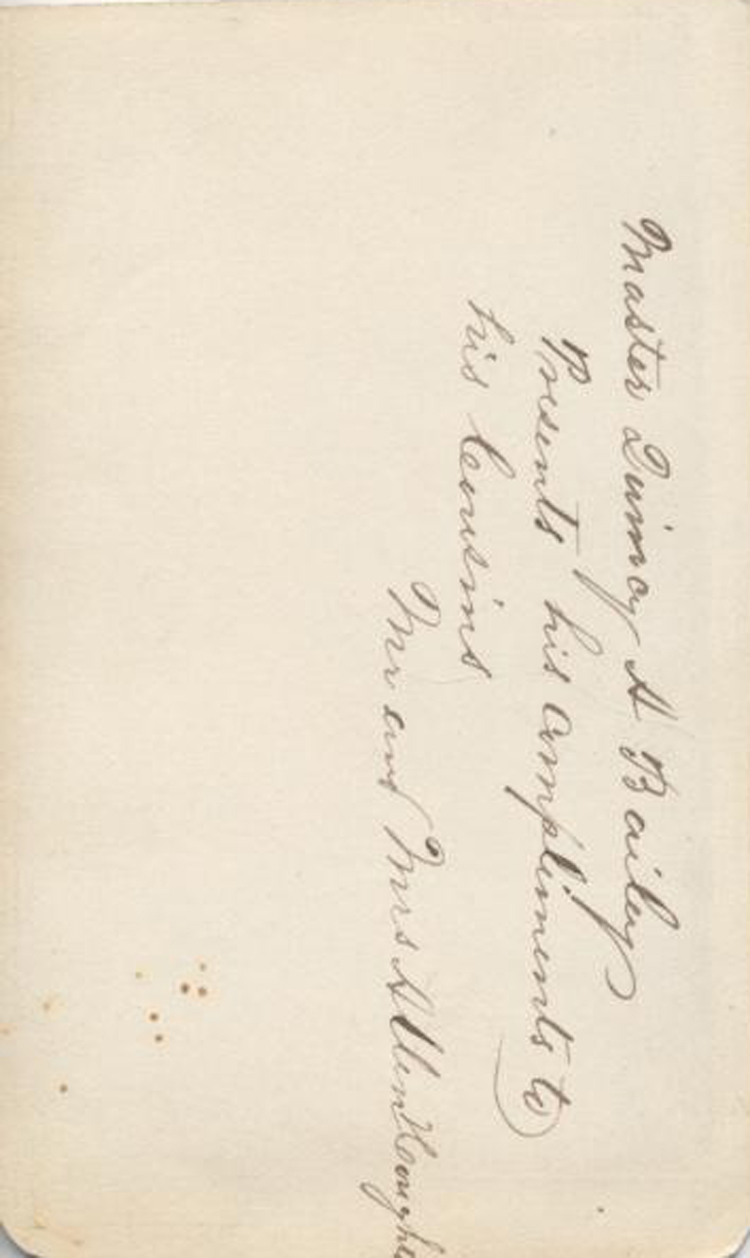 Master Quincy A Bailey
Presents his compliments to
his Cousins
Mr and Mrs Allen